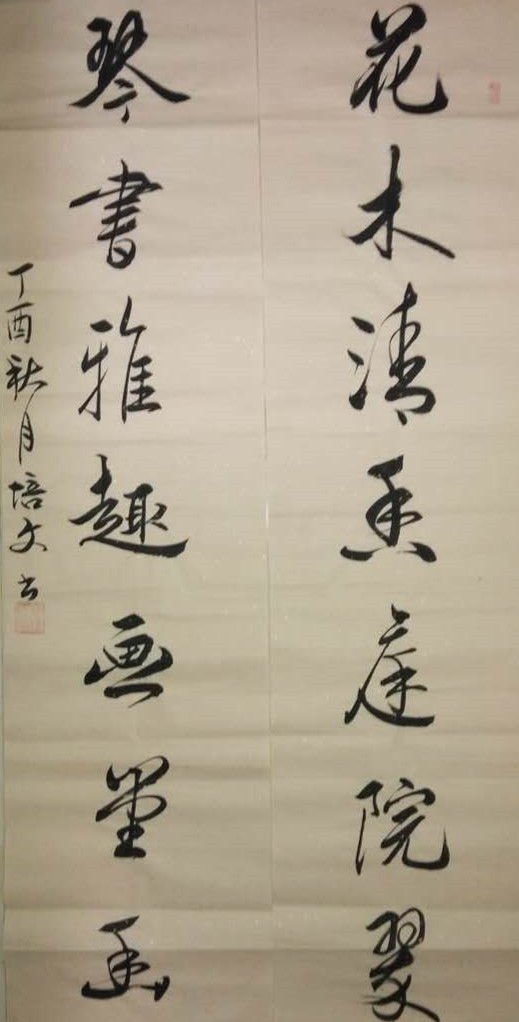 花木清香庭院翠
琴書雅趣画堂幽
丁酉秋月培文书